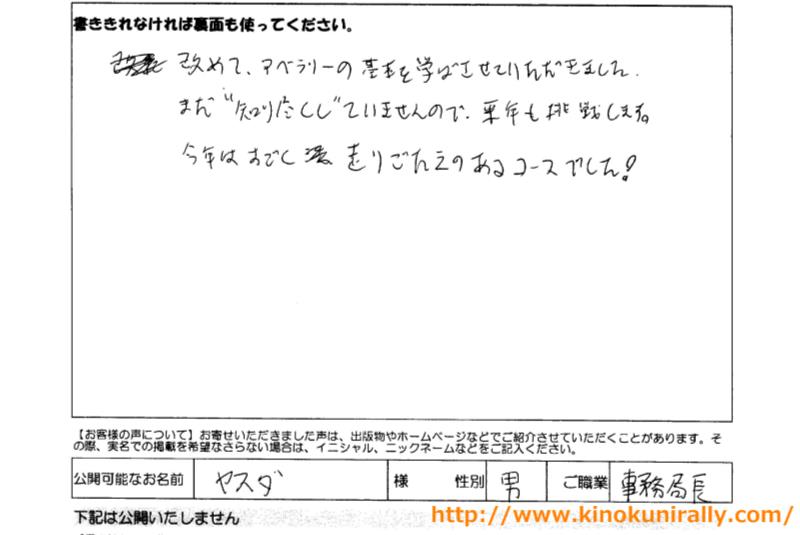 書ききれなければ裏面も使ってください。
改めて、アベラリーの基本を学ばさせていただきました。
まだ"知り尽くし"ていませんので、来年も挑戦します。
今年はすごく 走りごたえのあるコースでした!
【お客様の声について】お寄せいただきました声は、出版物やホームページなどでご紹介させていただくことがあります。そ
の際、実名での掲載を希望なさらない場合は、イニシャル、ニックネームなどをご記入ください。
公開可能なお名前 ヤスダ 様 性別 男 ご職業 事務局長
下記は公開いたしません
http://www.kinokunirally.com/